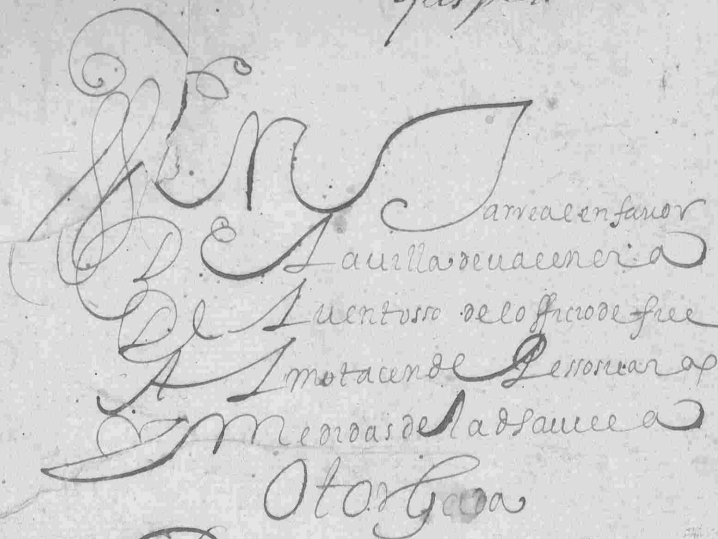 Venta rreal en fauor
De La uilla de ualencia
Del Uentosso del officio de fiel
Almotacen de Pessos uaras
Y Medidas de la dha uilla
Otorgada